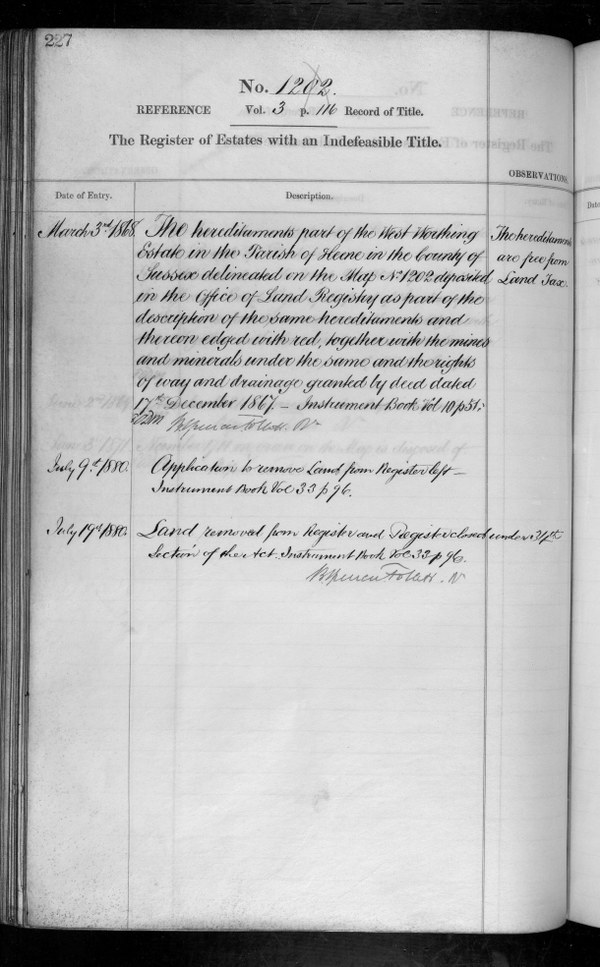 227
No. 1202.
REFERENCE Vol. 3 p. 116 Record of Title.
The Register of Estates with an Indefeasible Title.
OBSERVATIONS
Date of Entry.
Description.
March 3rd 1868.
The hereditaments part of the West Worthing
Estate in the Parish of Heene in the County of
Sussex delineated on the Map No 1202 deposited
in the Office of Land Registry as part of the
description of the same hereditaments and
thereon edged with red, together with the mines
and minerals under the same and the rights
of way and drainage granted by deed dated
17th December 1867. — Instrument Book Vol 10 p 51.
The hereditaments
are free from
Land Tax.
July 9th 1880.
Application to remove Land from Register left —
Instrument Book Vol 33 p 96.
July 19th 1880.
Land removed from Register and Register closed under 34th
Section of the Act. Instrument Book Vol 33 p 96.